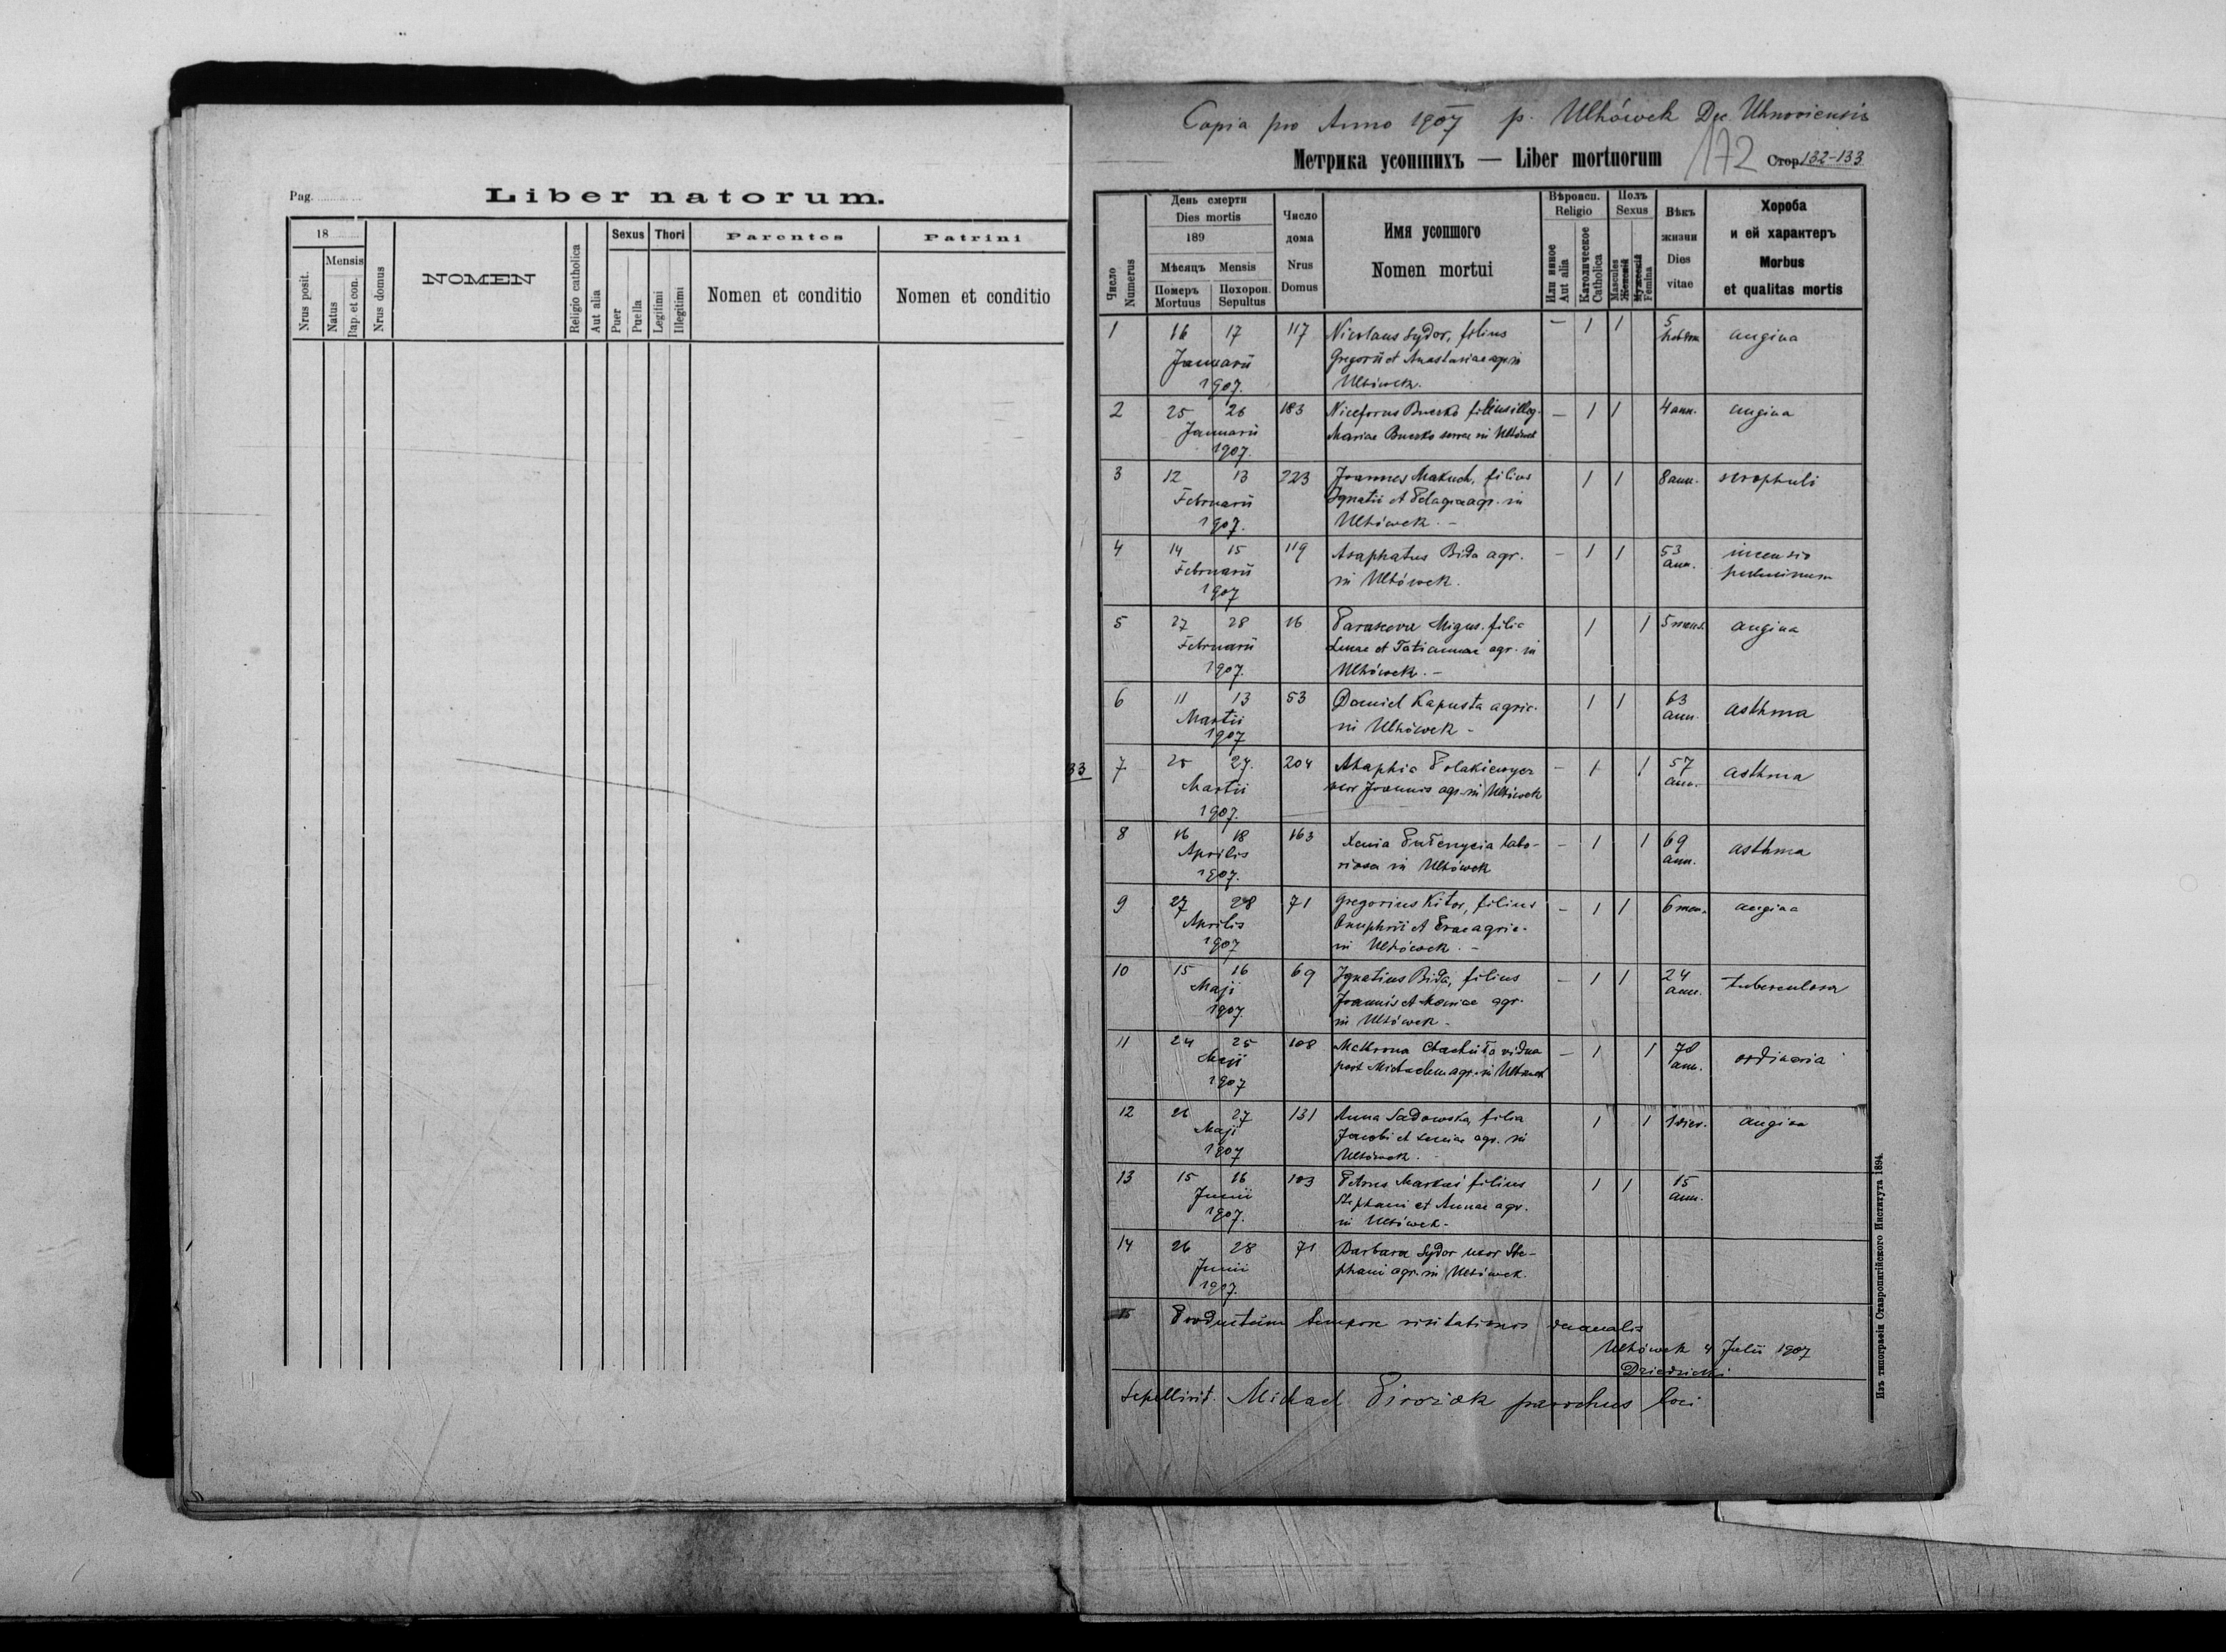 Pag.
Liber natorum.
18
Mensis
Nrus posit.
Natus
Bap. et con.
Nrus domus
NOMEN
Religio catholica
Aut alia
Sexus
Puer
Puella
Thori
Legitimi
Illegitimi
Parentes
Nomen et conditio
Patrini
Nomen et conditio
Copia pro Anno 1907 p. Ulhówek Dec. Uhnoviensis
Метрика усопшихъ — Liber mortuorum
172
Стор. 132-133
Число
Numerus
День смерти
Dies mortis
189
Мѣсяцъ Mensis
Померъ
Mortuus
Похорон.
Sepultus
Число
дома
Nrus
Domus
Имя усопшого
Nomen mortui
Вѣроисп.
Religio
Или инное
Aut alia
Католическое
Catholica
Полъ
Sexus
Mascules
Женскій
Мужескій
Femina
Вѣкъ
жизни
Dies
vitae
Хороба
и ей характеръ
Morbus
et qualitas mortis
1 16 17 117 Nicolaus Sydor, filius — 1 1 5
angina
Januarii Gregorii et Anastasiae agr. in
1907. Ulhówek.
2 25 26 183 Niceforus Buczko filius illeg. — 1 1 4 ann. angina
Januarii Mariae Buczko in Ulhówek
1907.
3 12 13 223 Joannes Makuch, filius 1 1 8 ann. scrophuli
Februarii Ignatii et Pelagiae agr. in
1907. Ulhówek. —
4 14 15 119 Asaphatus Bida agr. — 1 1 53
Februarii in Ulhówek. ann.
1907
5 27 28 16 Parascevia Migus. filia 1 1 5 mens. angina
Februarii Lucae et Tatiannae agr. in
1907. Ulhówek. —
6 11 13 53 Daniel Kapusta agric. 1 1 63 asthma
Martii in Ulhówek — ann.
1907
33
7 25 27. 204 Ahaphia — 1 1 57 asthma
Martii uxor Joannis agr. in Ulhówek ann.
1907.
8 16 18 163 Xenia labo- — 1 1 69 asthma
Aprilis riosa in Ulhówek ann.
1907.
9 27 28 71 Gregorius Kitor, filius — 1 1 6 men. angina
Aprilis Onuphrii et Evae agric.
1907 in Ulhówek. —
10 15 16 69 Ignatius Bida, filius — 1 1 24 tuberculosa
Maji Joannis et Mariae agr. ann.
1907. in Ulhówek —
11 24 25 108 Mathrona vidua — 1 1 70 ordinaria
Maji post Michaelem agr. in Ulhówek ann.
1907
12 26 27 131 Anna Sadowska, filia 1 1 angina
Maji Jacobi et agr. in
1907 Ulhówek. —
13 15 16 103 Petrus Markuś filius 1 1 15
Junii Stephani et Annae agr. ann.
1907. in Ulhówek —
14 26 28 71 Barbara Sydor uxor Ste-
Junii phani agr. in Ulhówek.
1907.
15 Productum tempore visitationis decanalis
Ulhówek 4 Julii 1907
Dziedzicki
Sepellivit. Michael Pirożok parochus loci
Изъ типографіи Ставропигійского Института 1894.